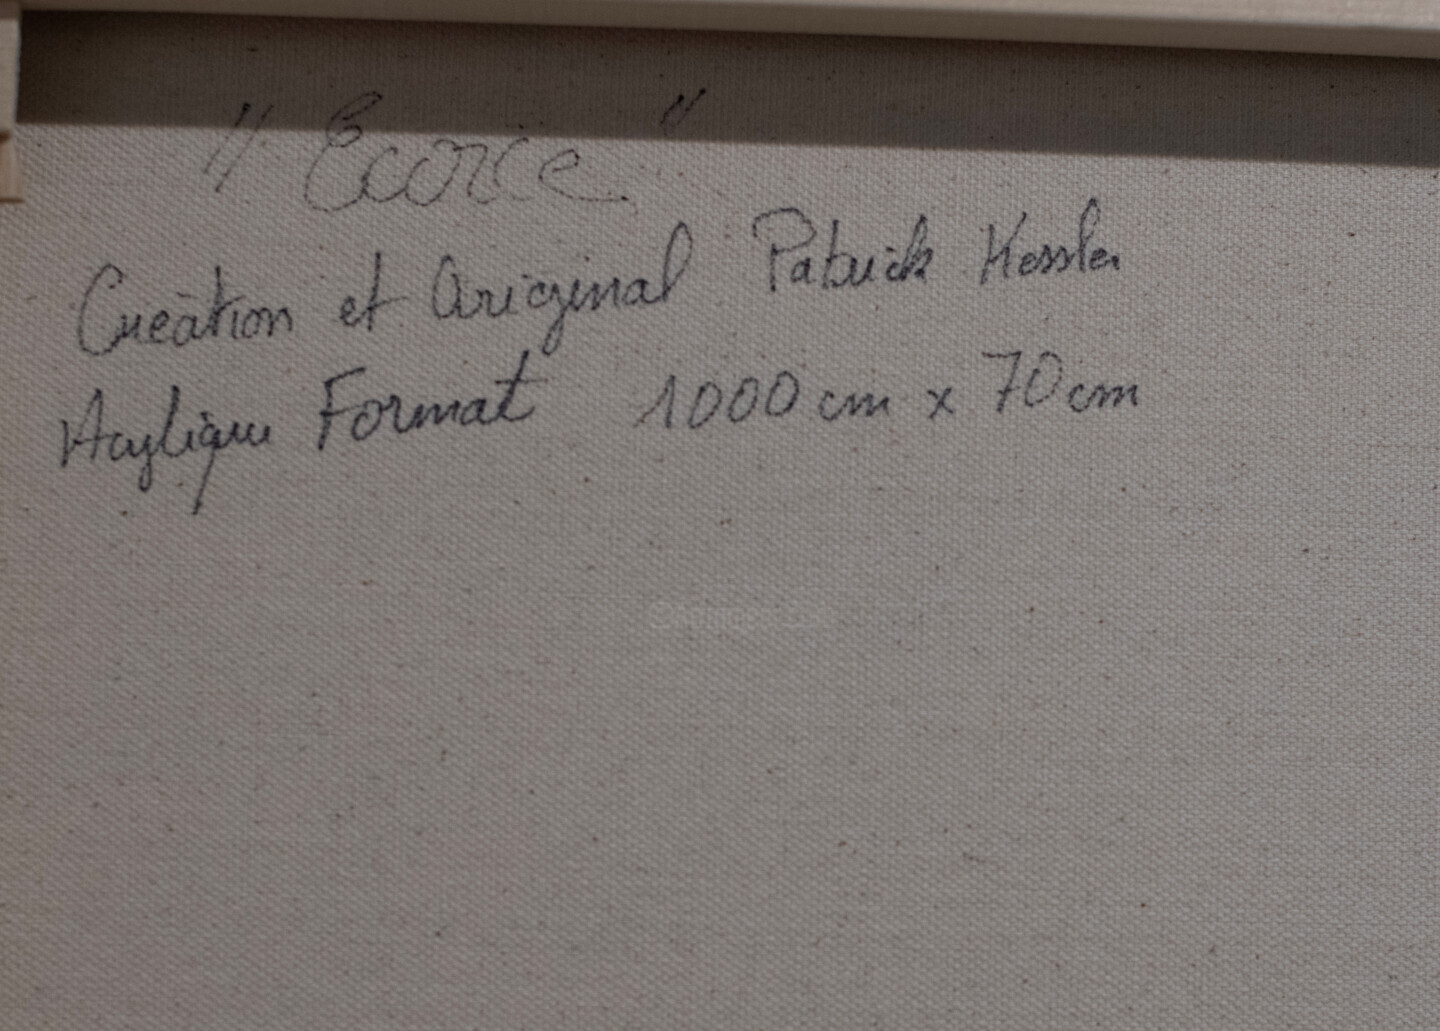 "Ecorce"
Création et Original Patrick Kessler
Acylique Format 1000 cm x 70 cm